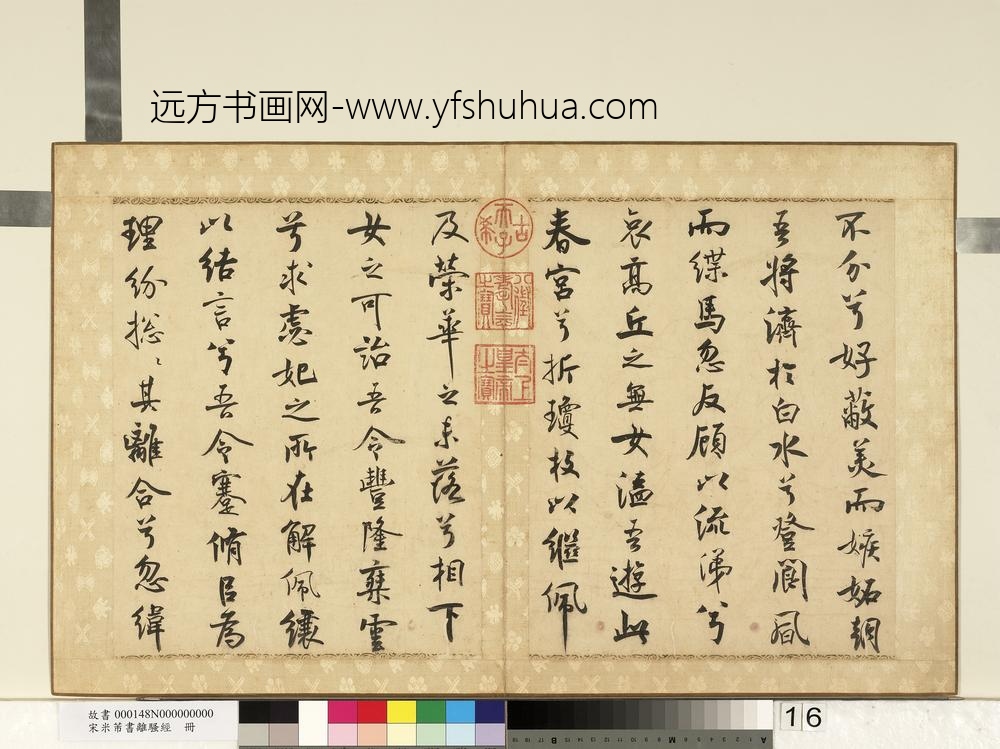 远方书画网-www.yfshuhua.com
不分兮好蔽美而嫉妬朝
吾將濟於白水兮登閬風
而緤馬忽反顧以流涕兮
哀高丘之無女溘吾遊此
春宮兮折瓊枝以繼佩
古希天子
八徵耄念之寶
太上皇帝之寶
及榮華之未落兮相下
女之可詒吾令豐隆椉雲
兮求宓妃之所在解佩纕
以結言兮吾令蹇脩以為
理紛揔〻其離合兮忽緯
故書 000148N000000000
宋米芾書離騷經 冊
16